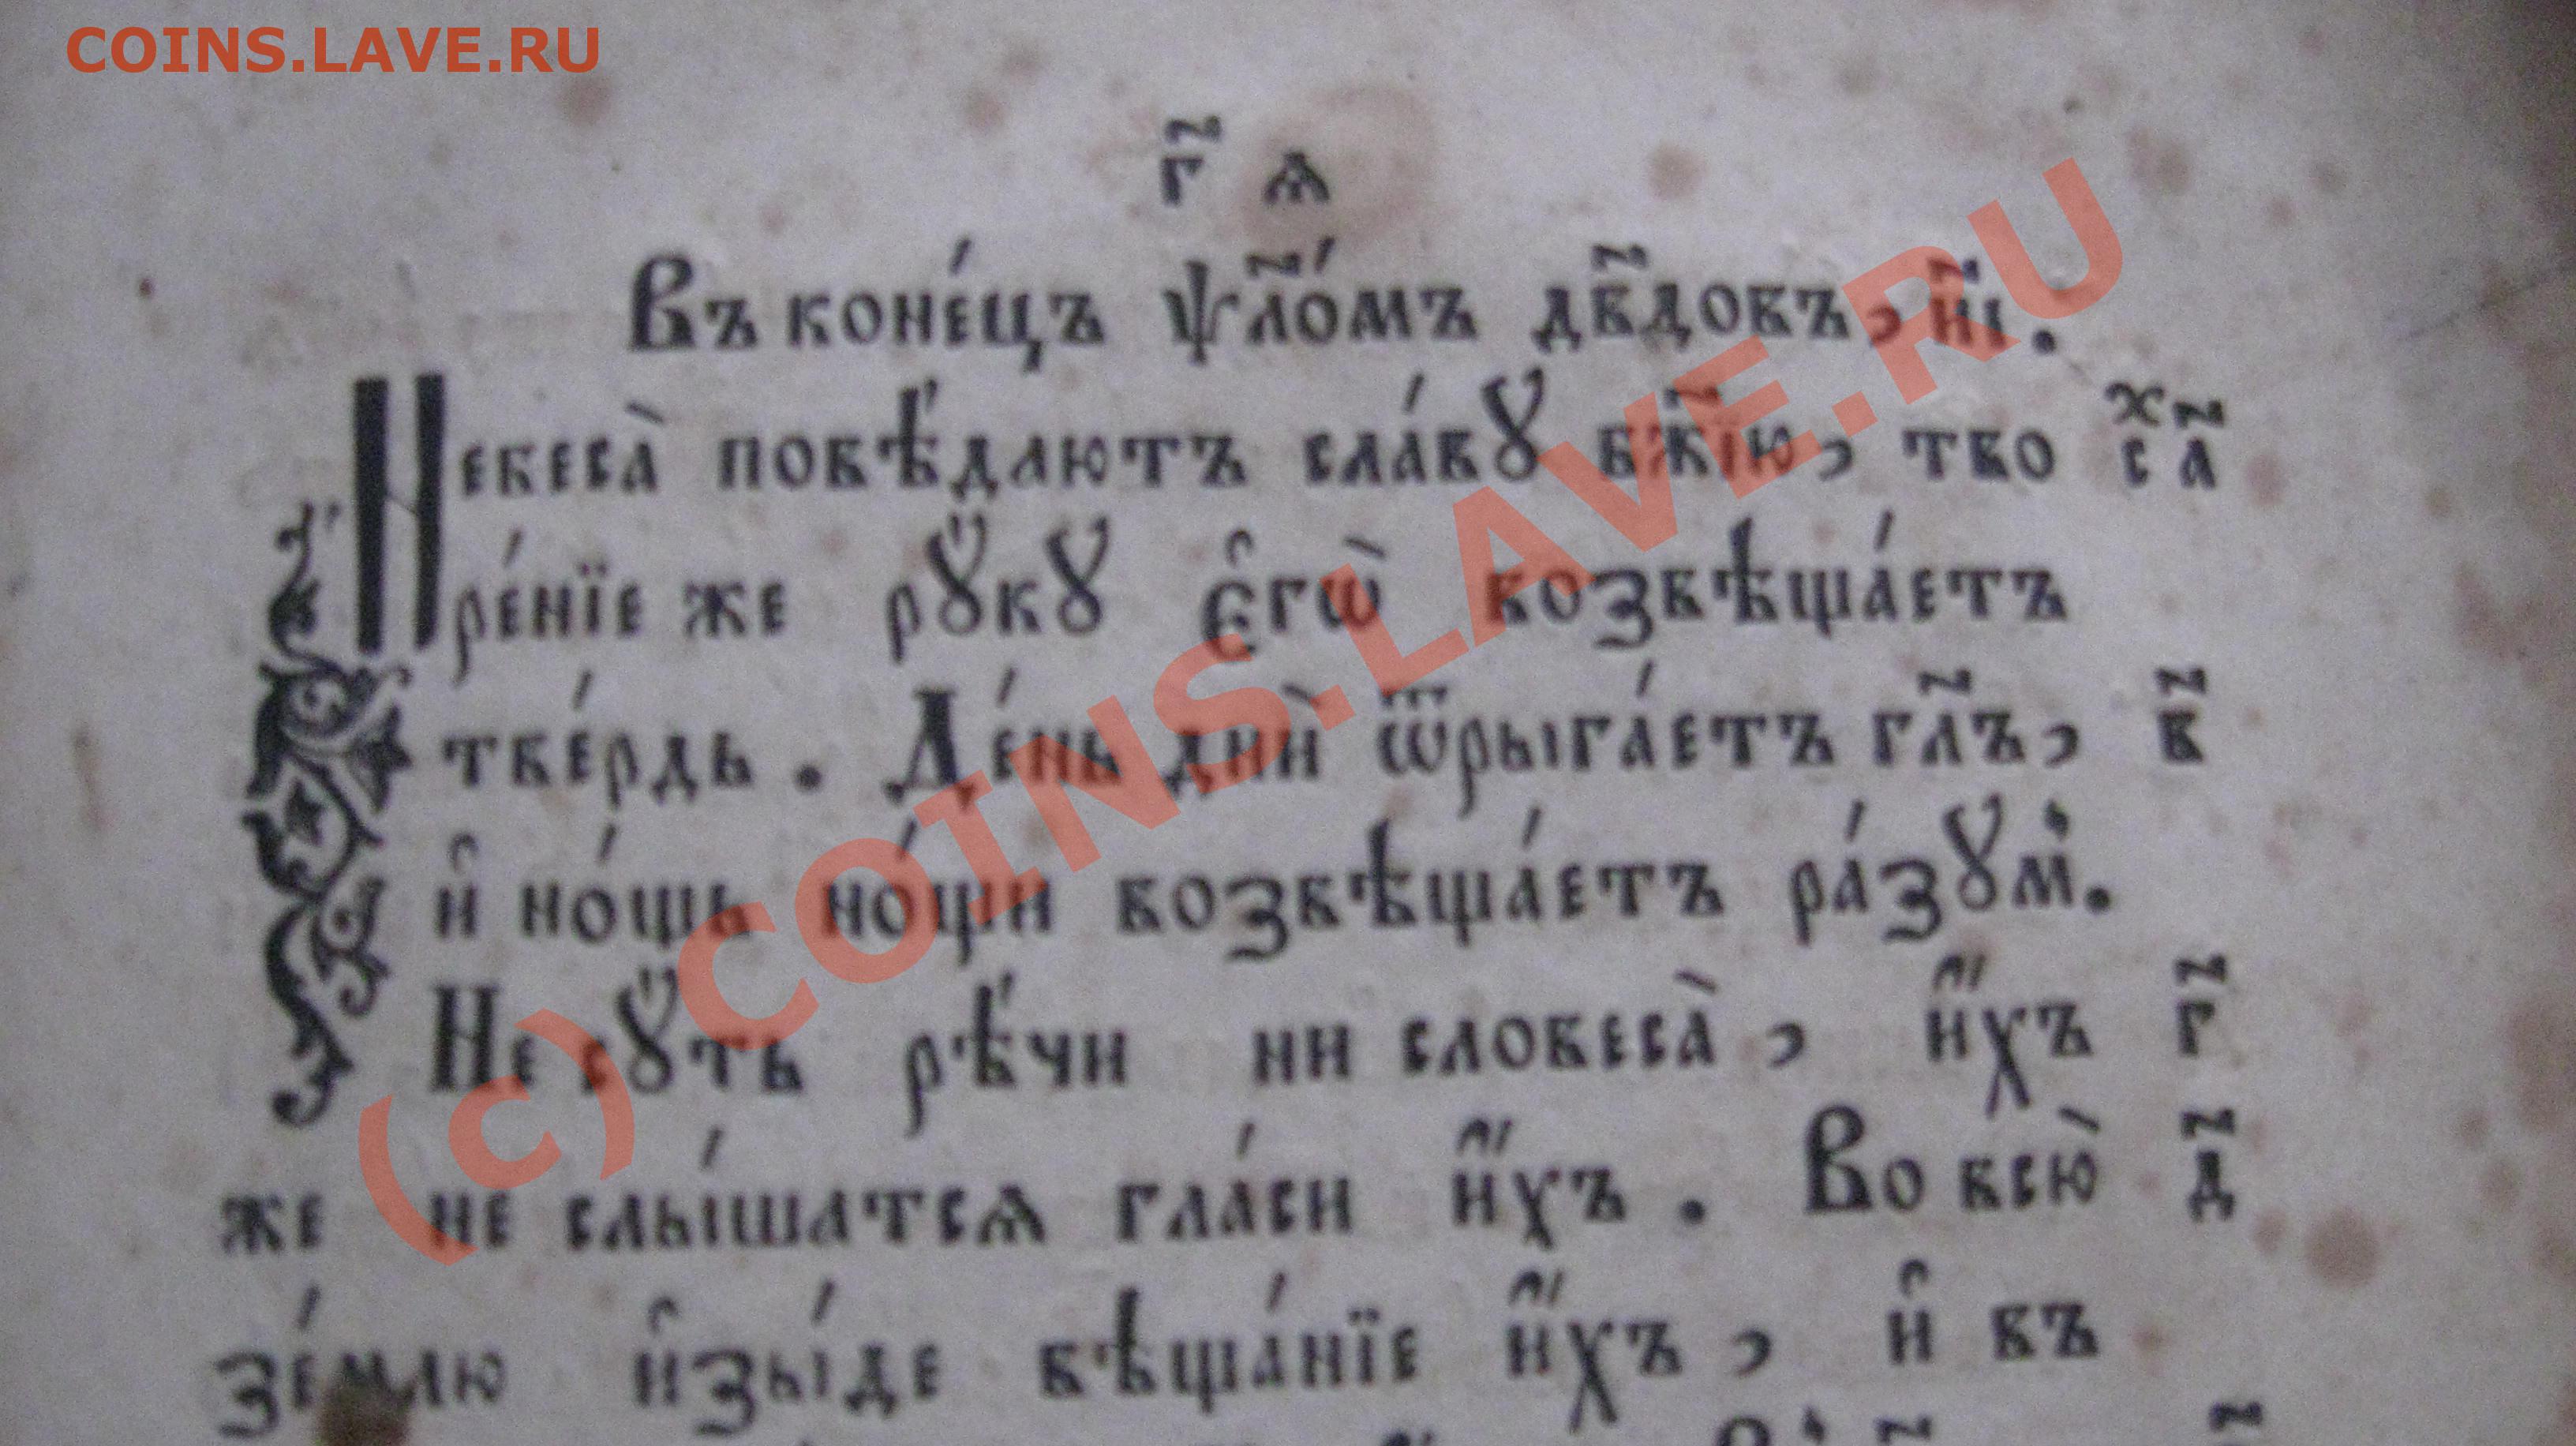 COINS.LAVE.RU
г҃ ѧ
Въ коне́цъ ѱл҃о́мъ дв҃довъ, и҃і.
Небеса̀ повѣ́даютъ сла́вꙋ бж҃їю, тво
с̾ а҃
ре́нїе же рꙋ́кꙋ є҆гѡ̀ возвѣща́етъ
тве́рдь. Де́нь днѝ ѿрыга́етъ гл҃ъ,
в҃
и҆ но́щь но́щи возвѣща́етъ ра́зꙋм̾.
Не сꙋ́ть рѣ́чи ни словеса̀, и҆́хъ
г҃
же не слы́шатсѧ гла́си и҆́хъ. Во всю̀
д҃
зе́млю и҆зы́де вѣща́нїе и҆́хъ, и҆ въ
(c) COINS.LAVE.RU